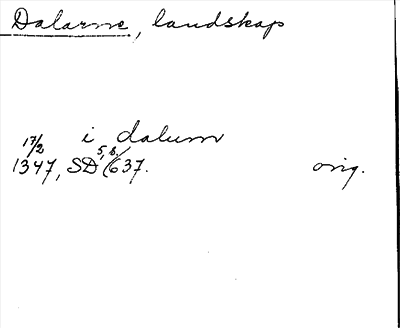 Dalarne, landskap
i dalum
17/2 1347, SD 5, s. 637. orig.